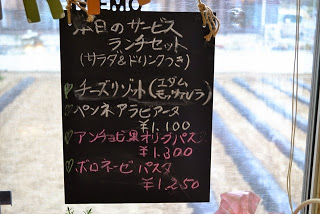 EMO
本日のサービス
ランチセット
(サラダ&ドリンクつき)
チーズリゾット(エダム
モッツァレラ)
ペンネアラビアータ
¥1,100
アンチョビ黒オリーブパスタ
¥1,300
ボロネーゼパスタ
¥1,250